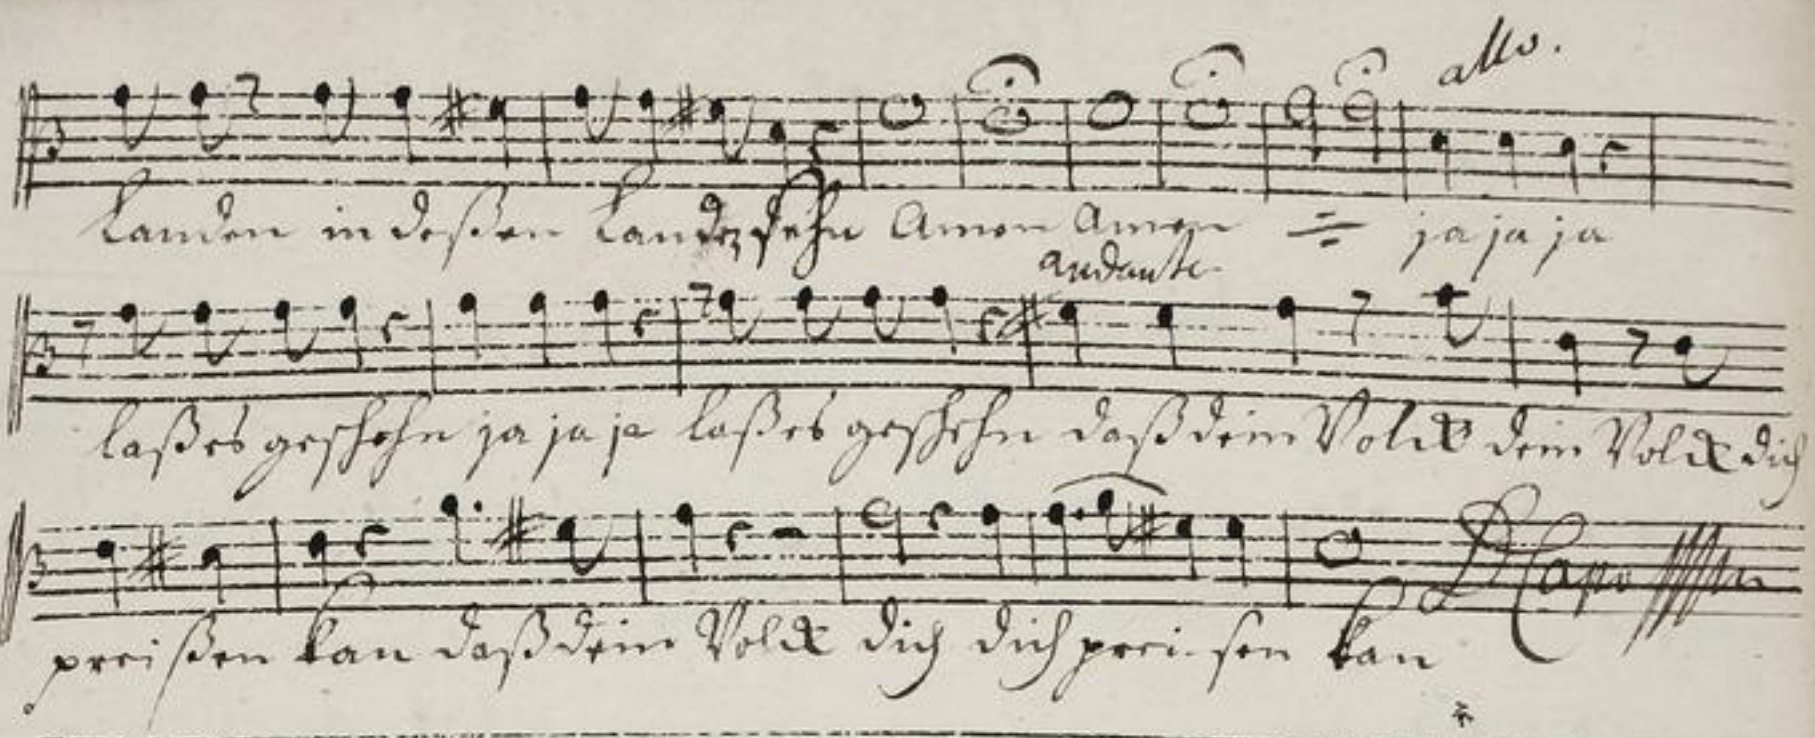 allo.
landen in deßen landen stehn Amen Amen = ja ja ja
andante.
laß es geschehn ja ja ja laß es geschehn daß dein Volck dein Volck dich
preißen kan daß dein Volck dich dich prei-sen kan
D Capo